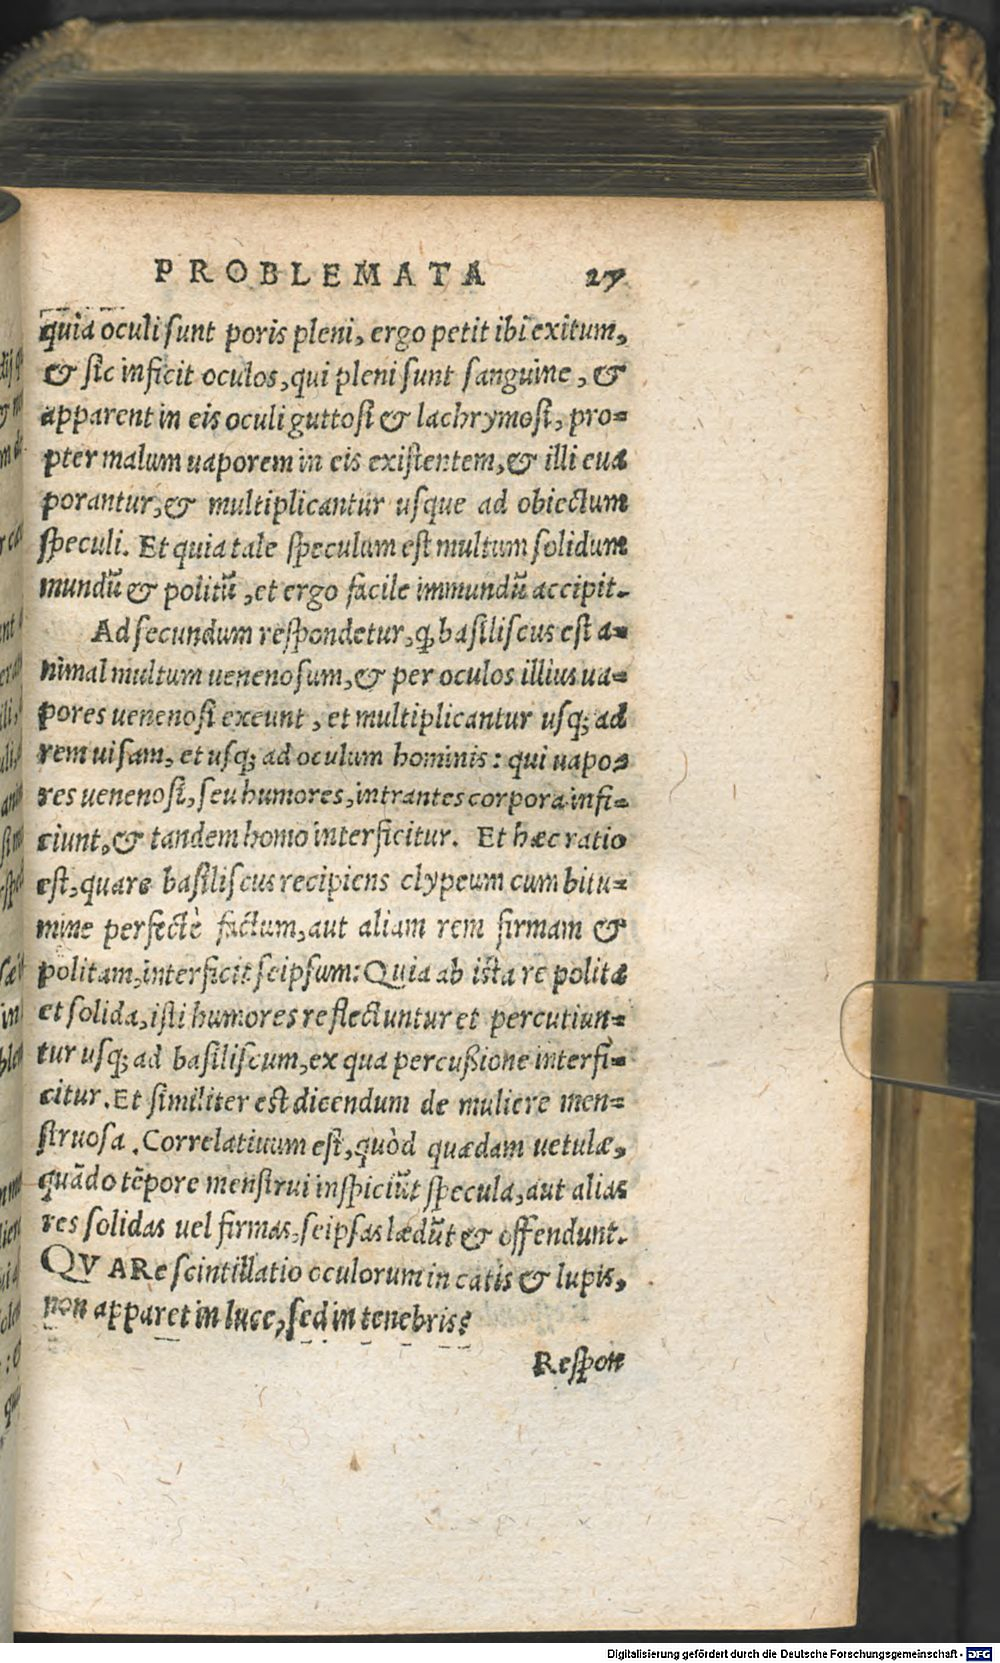 PROBLEMATA 27
quia oculi sunt poris pleni, ergo petit ibi exitum,
& sic inficit oculos, qui pleni sunt sanguine, &
apparent in eis oculi guttosi & lachrymosi, pro=
pter malum uaporem in eis existentem, & illi eua
porantur, & multiplicantur usque ad obiectum
speculi. Et quia tale speculum est multum solidum
mundū & politū, et ergo facile immundū accipit.
Ad secundum respondetur, ꝙ basiliscus est a=
nimal multum uenenosum, & per oculos illius ua=
pores uenenosi exeunt, et multiplicantur usq; ad
rem uisam, et usq; ad oculum hominis: qui uapo=
res uenenosi, seu humores, intrantes corpora infi=
ciunt, & tandem homo interficitur. Et hæc ratio
est, quare basiliscus recipiens clypeum cum bitu=
mine perfectè factum, aut aliam rem firmam &
politam, interficit seipsum: Quia ab ista re polita
et solida, isti humores reflectuntur et percutiun=
tur usq; ad basiliscum, ex qua percußione interfi=
citur. Et similiter est dicendum de muliere men=
struosa. Correlatiuum est, quòd quædam uetulæ,
quādo tēpore menstrui inspiciūt specula, aut alias
res solidas uel firmas, seipsas lædūt & offendunt.
QVARe scintillatio oculorum in catis & lupis,
non apparet in luce, sed in tenebris?
Respon
Digitalisierung gefördert durch die Deutsche Forschungsgemeinschaft - DFG